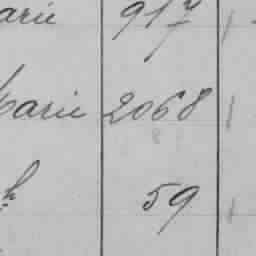 arie 917
Marie 2068
h 59